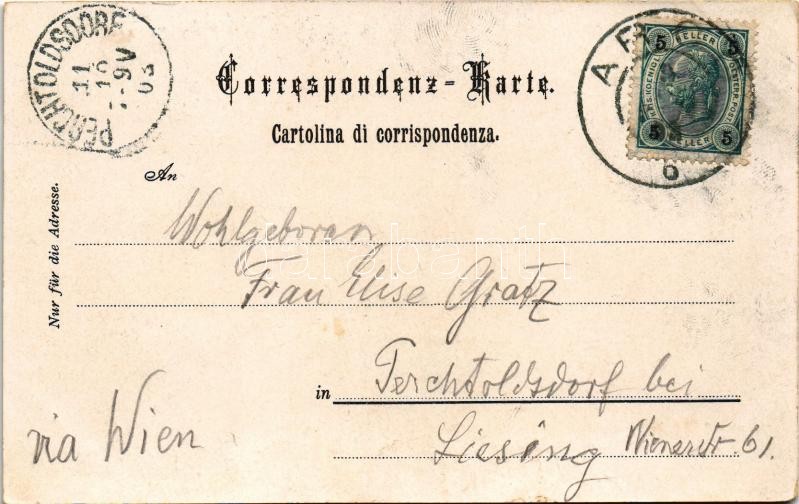 PERCHTOLDSDORF
11
10
-9V
03
Correspondenz-Karte.
Cartolina di corrispondenza.
5 HELLER 5
KAIS. KOENIGL. OESTERR. POST
5 HELLER 5
6
An
Nur für die Adresse.
Wohlgeboren
Frau Elise Gratz
in Perchtoldsdorf bei
Liesing Wienerstr. 61.
via Wien
darabanth